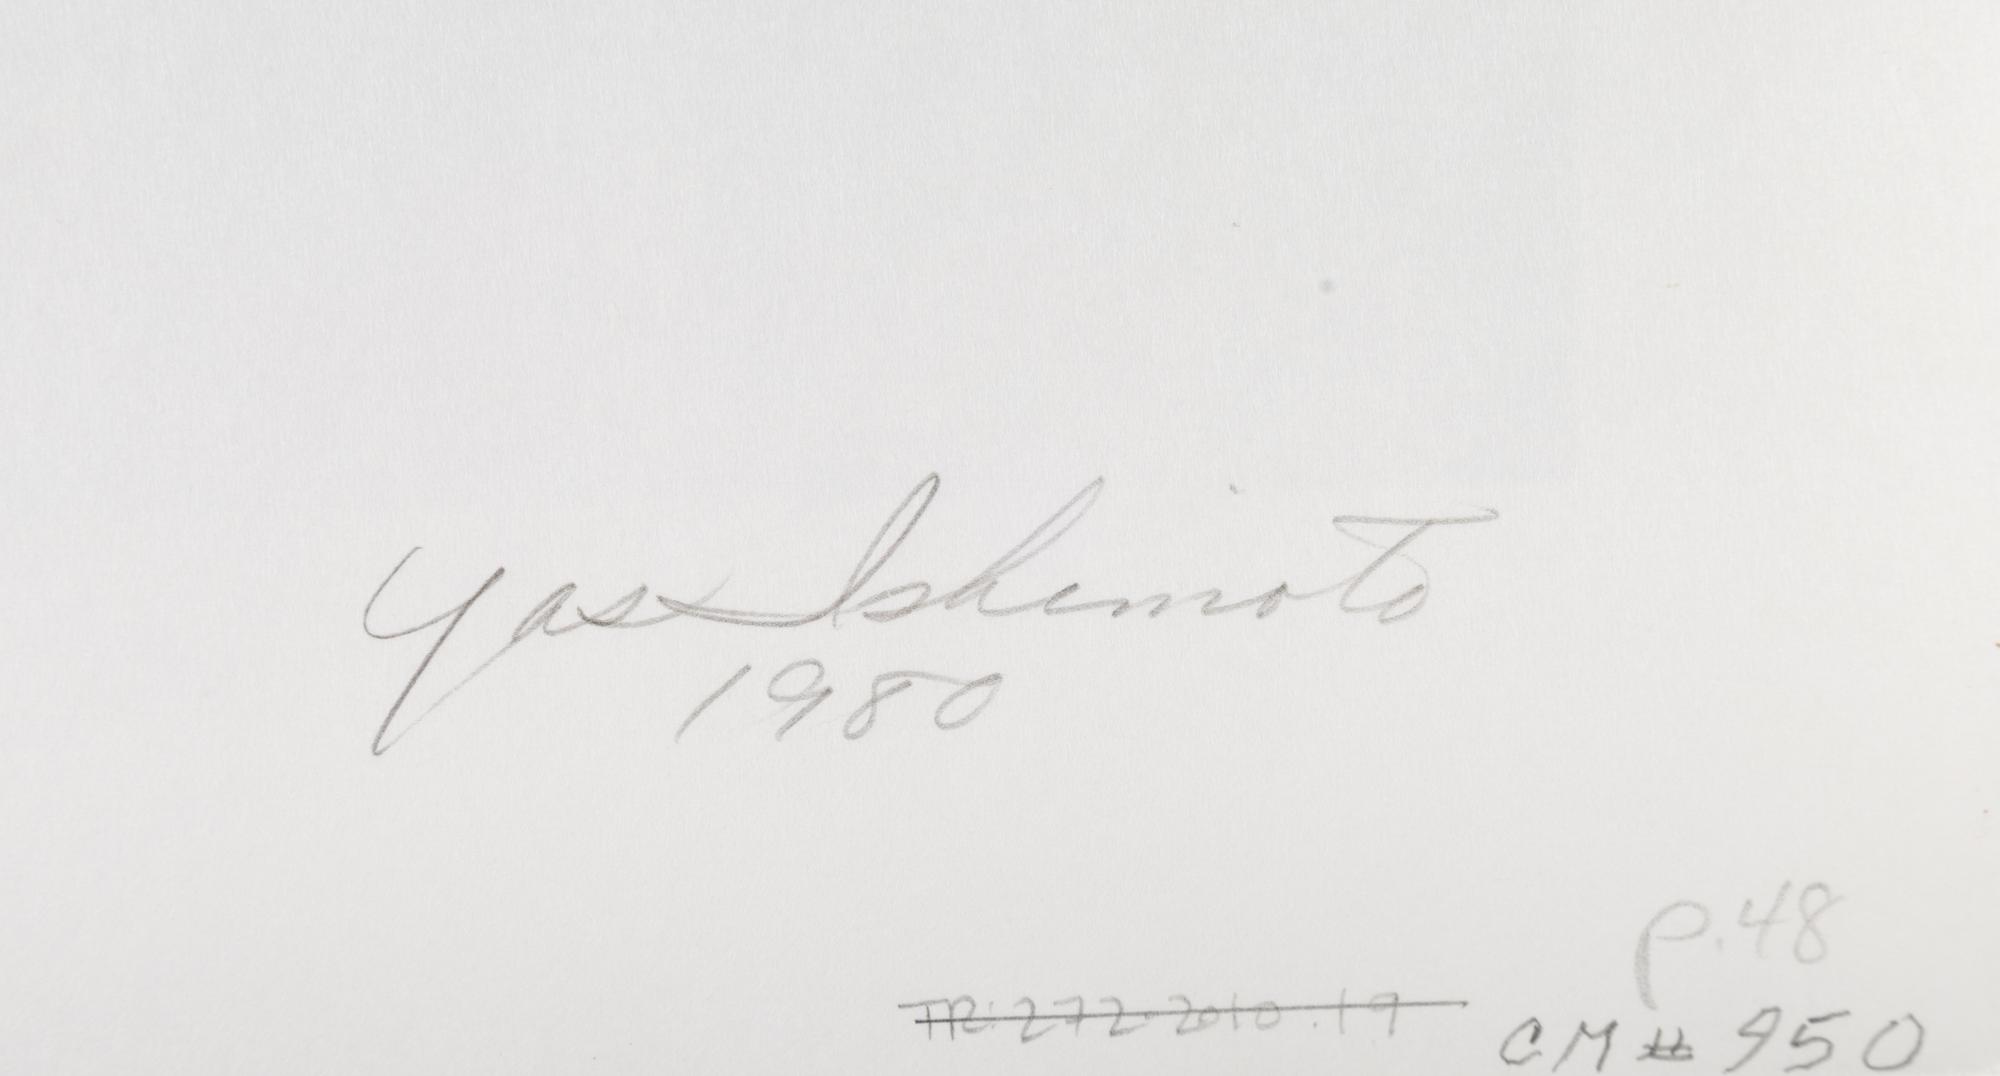 Yas Ishimoto
1980
p.48
TR:272-2010.19
CM# 950